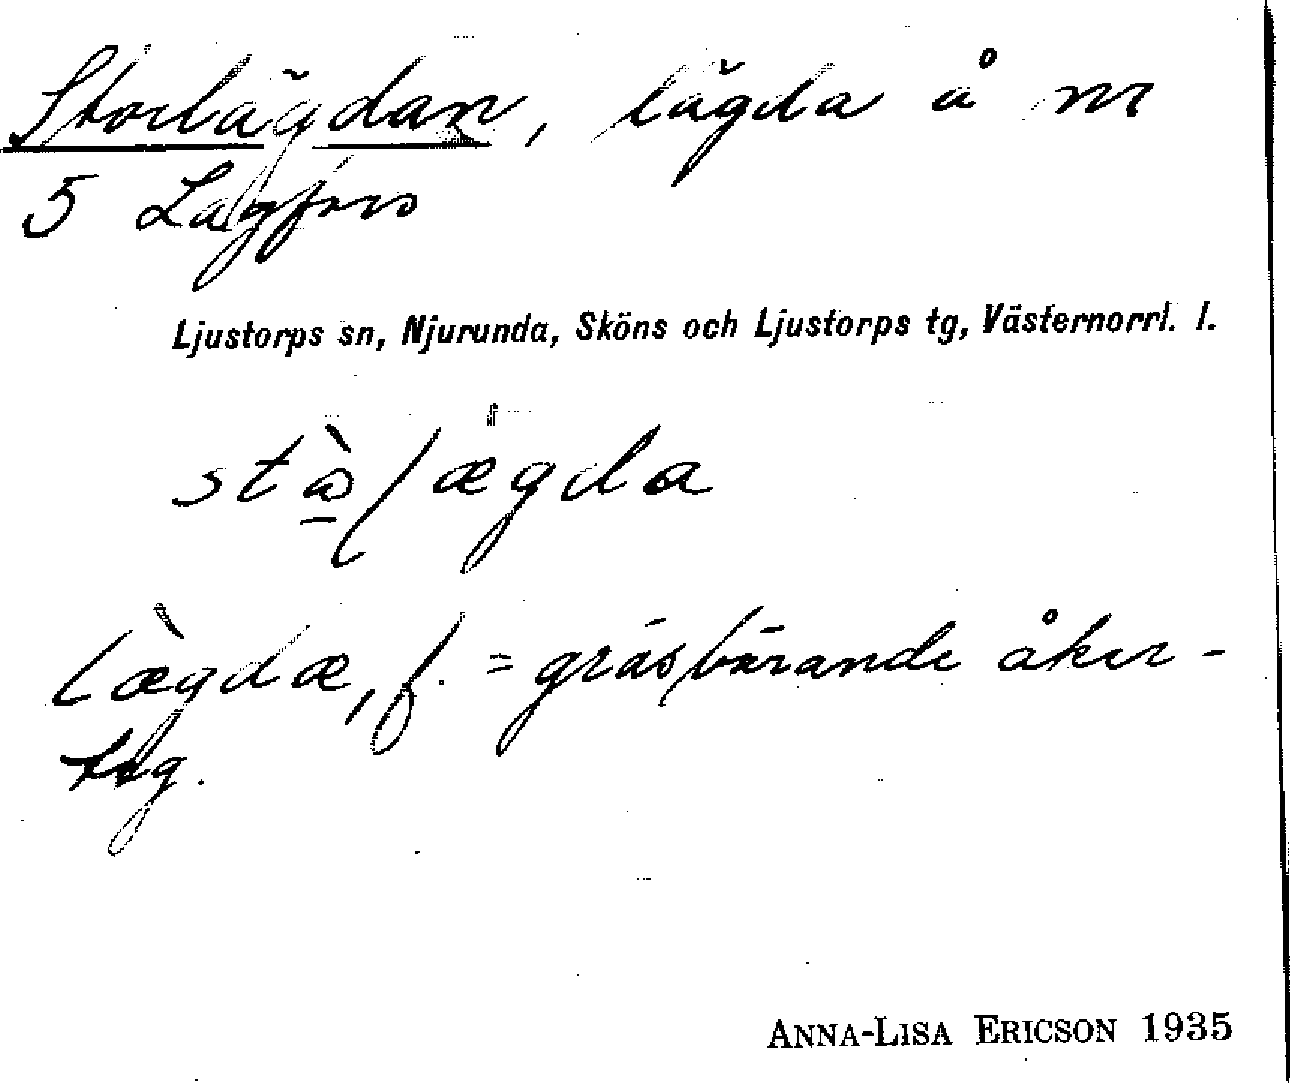 Storlägdan, lägda å nr
5 Lagfors
Ljustorps sn, Njurunda, Sköns och Ljustorps tg, Västernorrl. l.
stòlægda
lægdæ, f. = gräsbärande åker-
teg.
ANNA-LISA ERICSON 1935